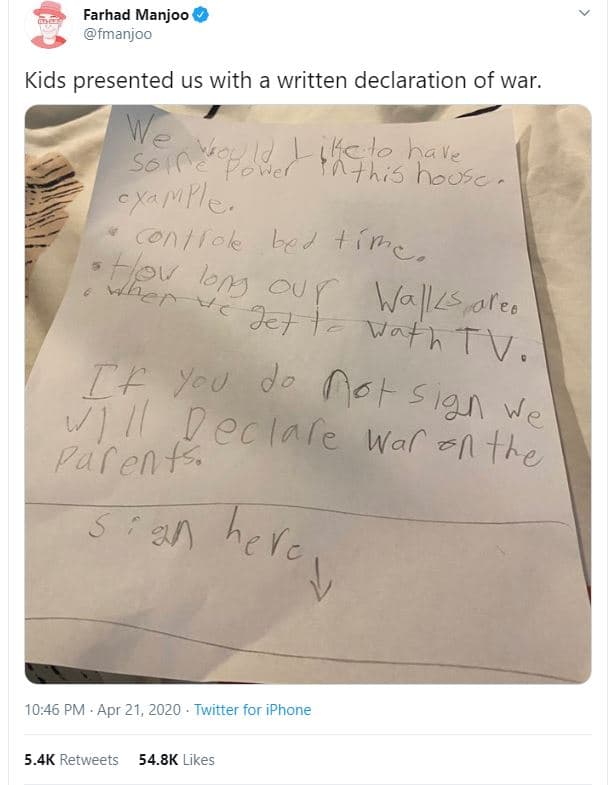 Farhad Manjoo
@fmanjoo
Kids presented us with a written declaration of war.
We would Like to have
some power in this house.
example.
• controle bed time.
• How long our Walks are.
• when we get to wath TV.
If you do not sign we
will Declare war on the
Parents.
sign here
10:46 PM · Apr 21, 2020 · Twitter for iPhone
5.4K Retweets 54.8K Likes